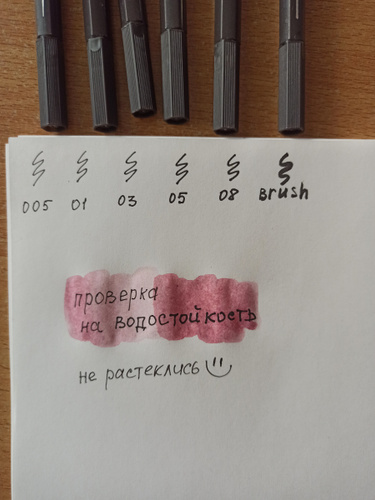 005 01 03 05 08 Brush
проверка
на водостойкость
не растеклись